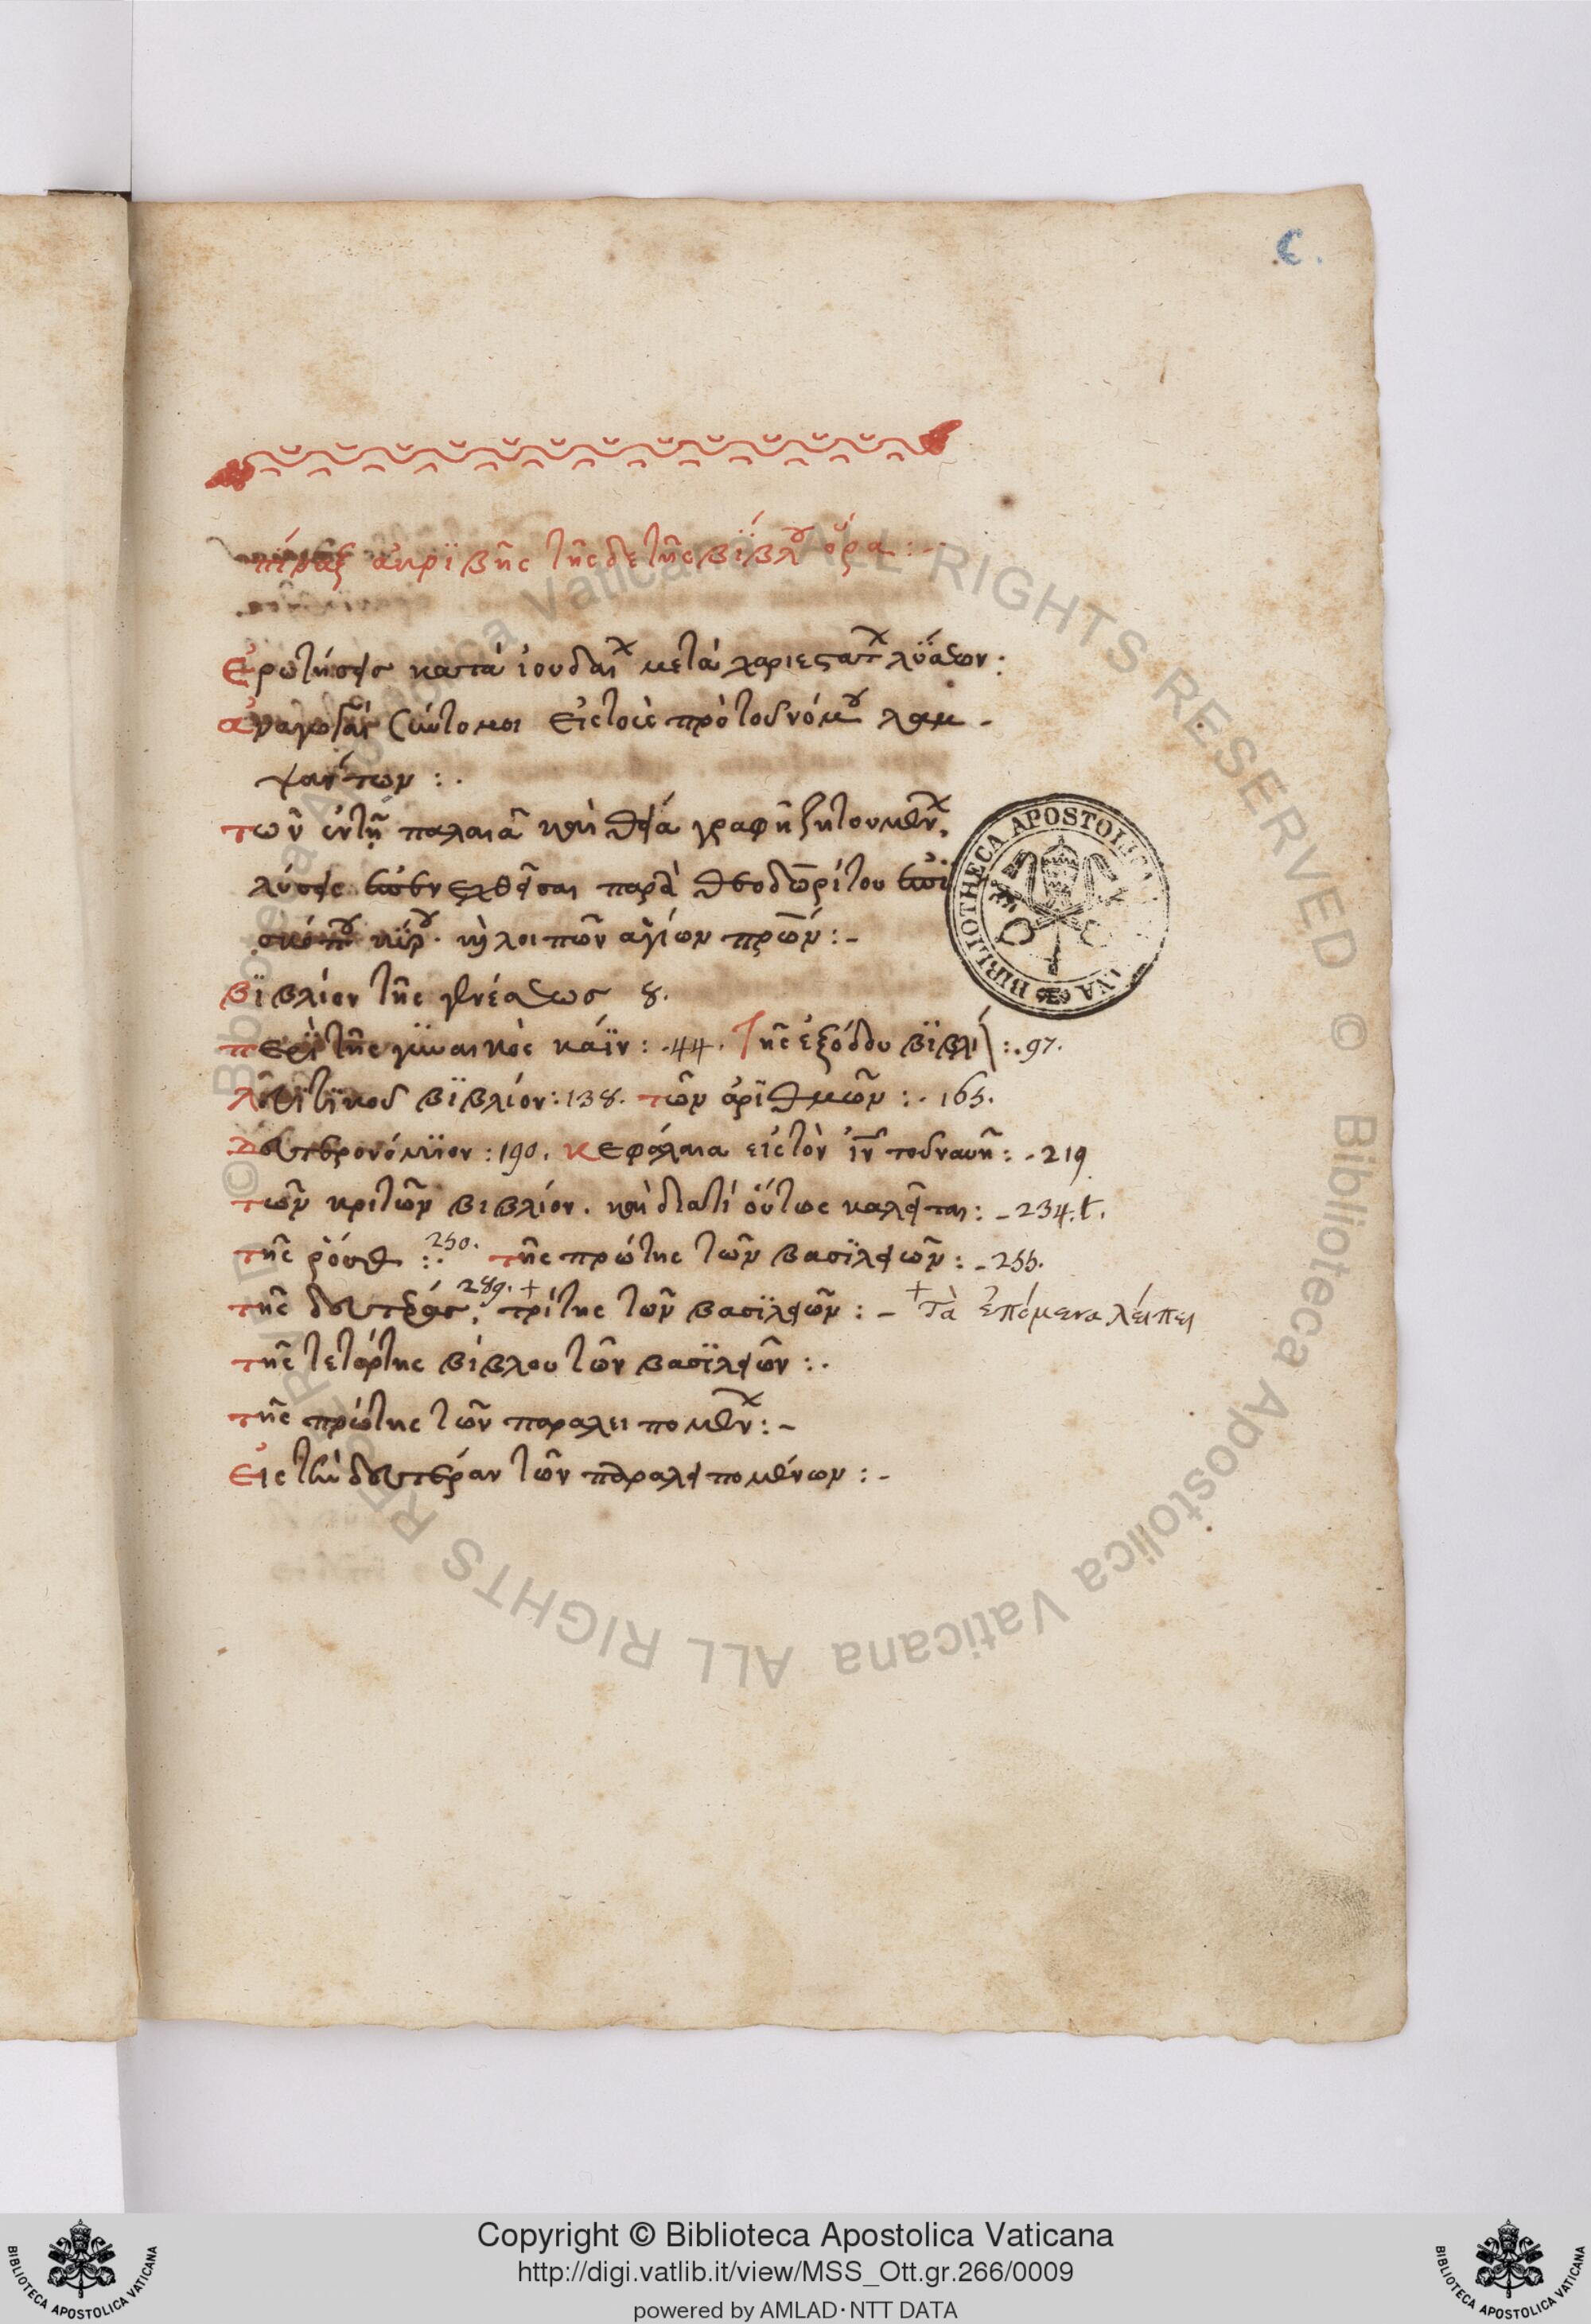 C.
πίναξ ἀκρϊβὴς τῆσδε τῆς βΐβλου ὅρα :-
Ἐρωτήσεις κατὰ ἰουδαι μετὰ χαριεστατ λΰσεων :
ἀναγωγαὶ σύντομοι εἰς τοὺς πρὸ τοῦ νόμου λαμ -
ψάντων : .
τῶν ἐν τῇ παλαιᾶ καὶ θεία γραφῆ ζητουμεν
λύσεις ἐπενεχθεῖσαι παρὰ θεοδωρίτου ἐπι
σκόπου κΰρου . καὶ λοιπῶν ἁγίων πρων :-
βϊβλίον τῆς γενέσεως 8.
περὶ τῆς γυναικὸς κάϊν : .44. Τῆς ἐξόδου βϊβλί :. 97.
λευϊτϊκοῦ βϊβλίον : 138. τῶν ἀρϊθμῶν : . 165.
Δευτερονόμϊον : 190. κεφάλαια εἰς τὸν ἰν τοῦ ναυῆ : . 219
τῶν κριτῶν βιβλίον . καὶ διατί οὕτως καλεῖται : - 234.t.
τῆς ῥούθ :. 250. τῆς πρώτης τῶν βασϊλειῶν : - 255.
τῆς δευτέρας . 289. + τρίτης τῶν βασϊλειῶν : - + Τὰ ἑπόμενα λείπει
τῆς τετάρτης βίβλου τῶν βασϊλειῶν : .
τῆς πρώτης τῶν παραλειπομεν : -
εἰς τὴν δευτέραν τῶν παραλειπομένων : -
BIBLIOTHECA APOSTOLICA VATICANA
© Biblioteca Apostolica Vaticana ALL RIGHTS RESERVED © Biblioteca Apostolica Vaticana ALL RIGHTS RESERVED
Copyright © Biblioteca Apostolica Vaticana
http://digi.vatlib.it/view/MSS_Ott.gr.266/0009
powered by AMLAD·NTT DATA
BIBLIOTECA APOSTOLICA VATICANA
BIBLIOTECA APOSTOLICA VATICANA